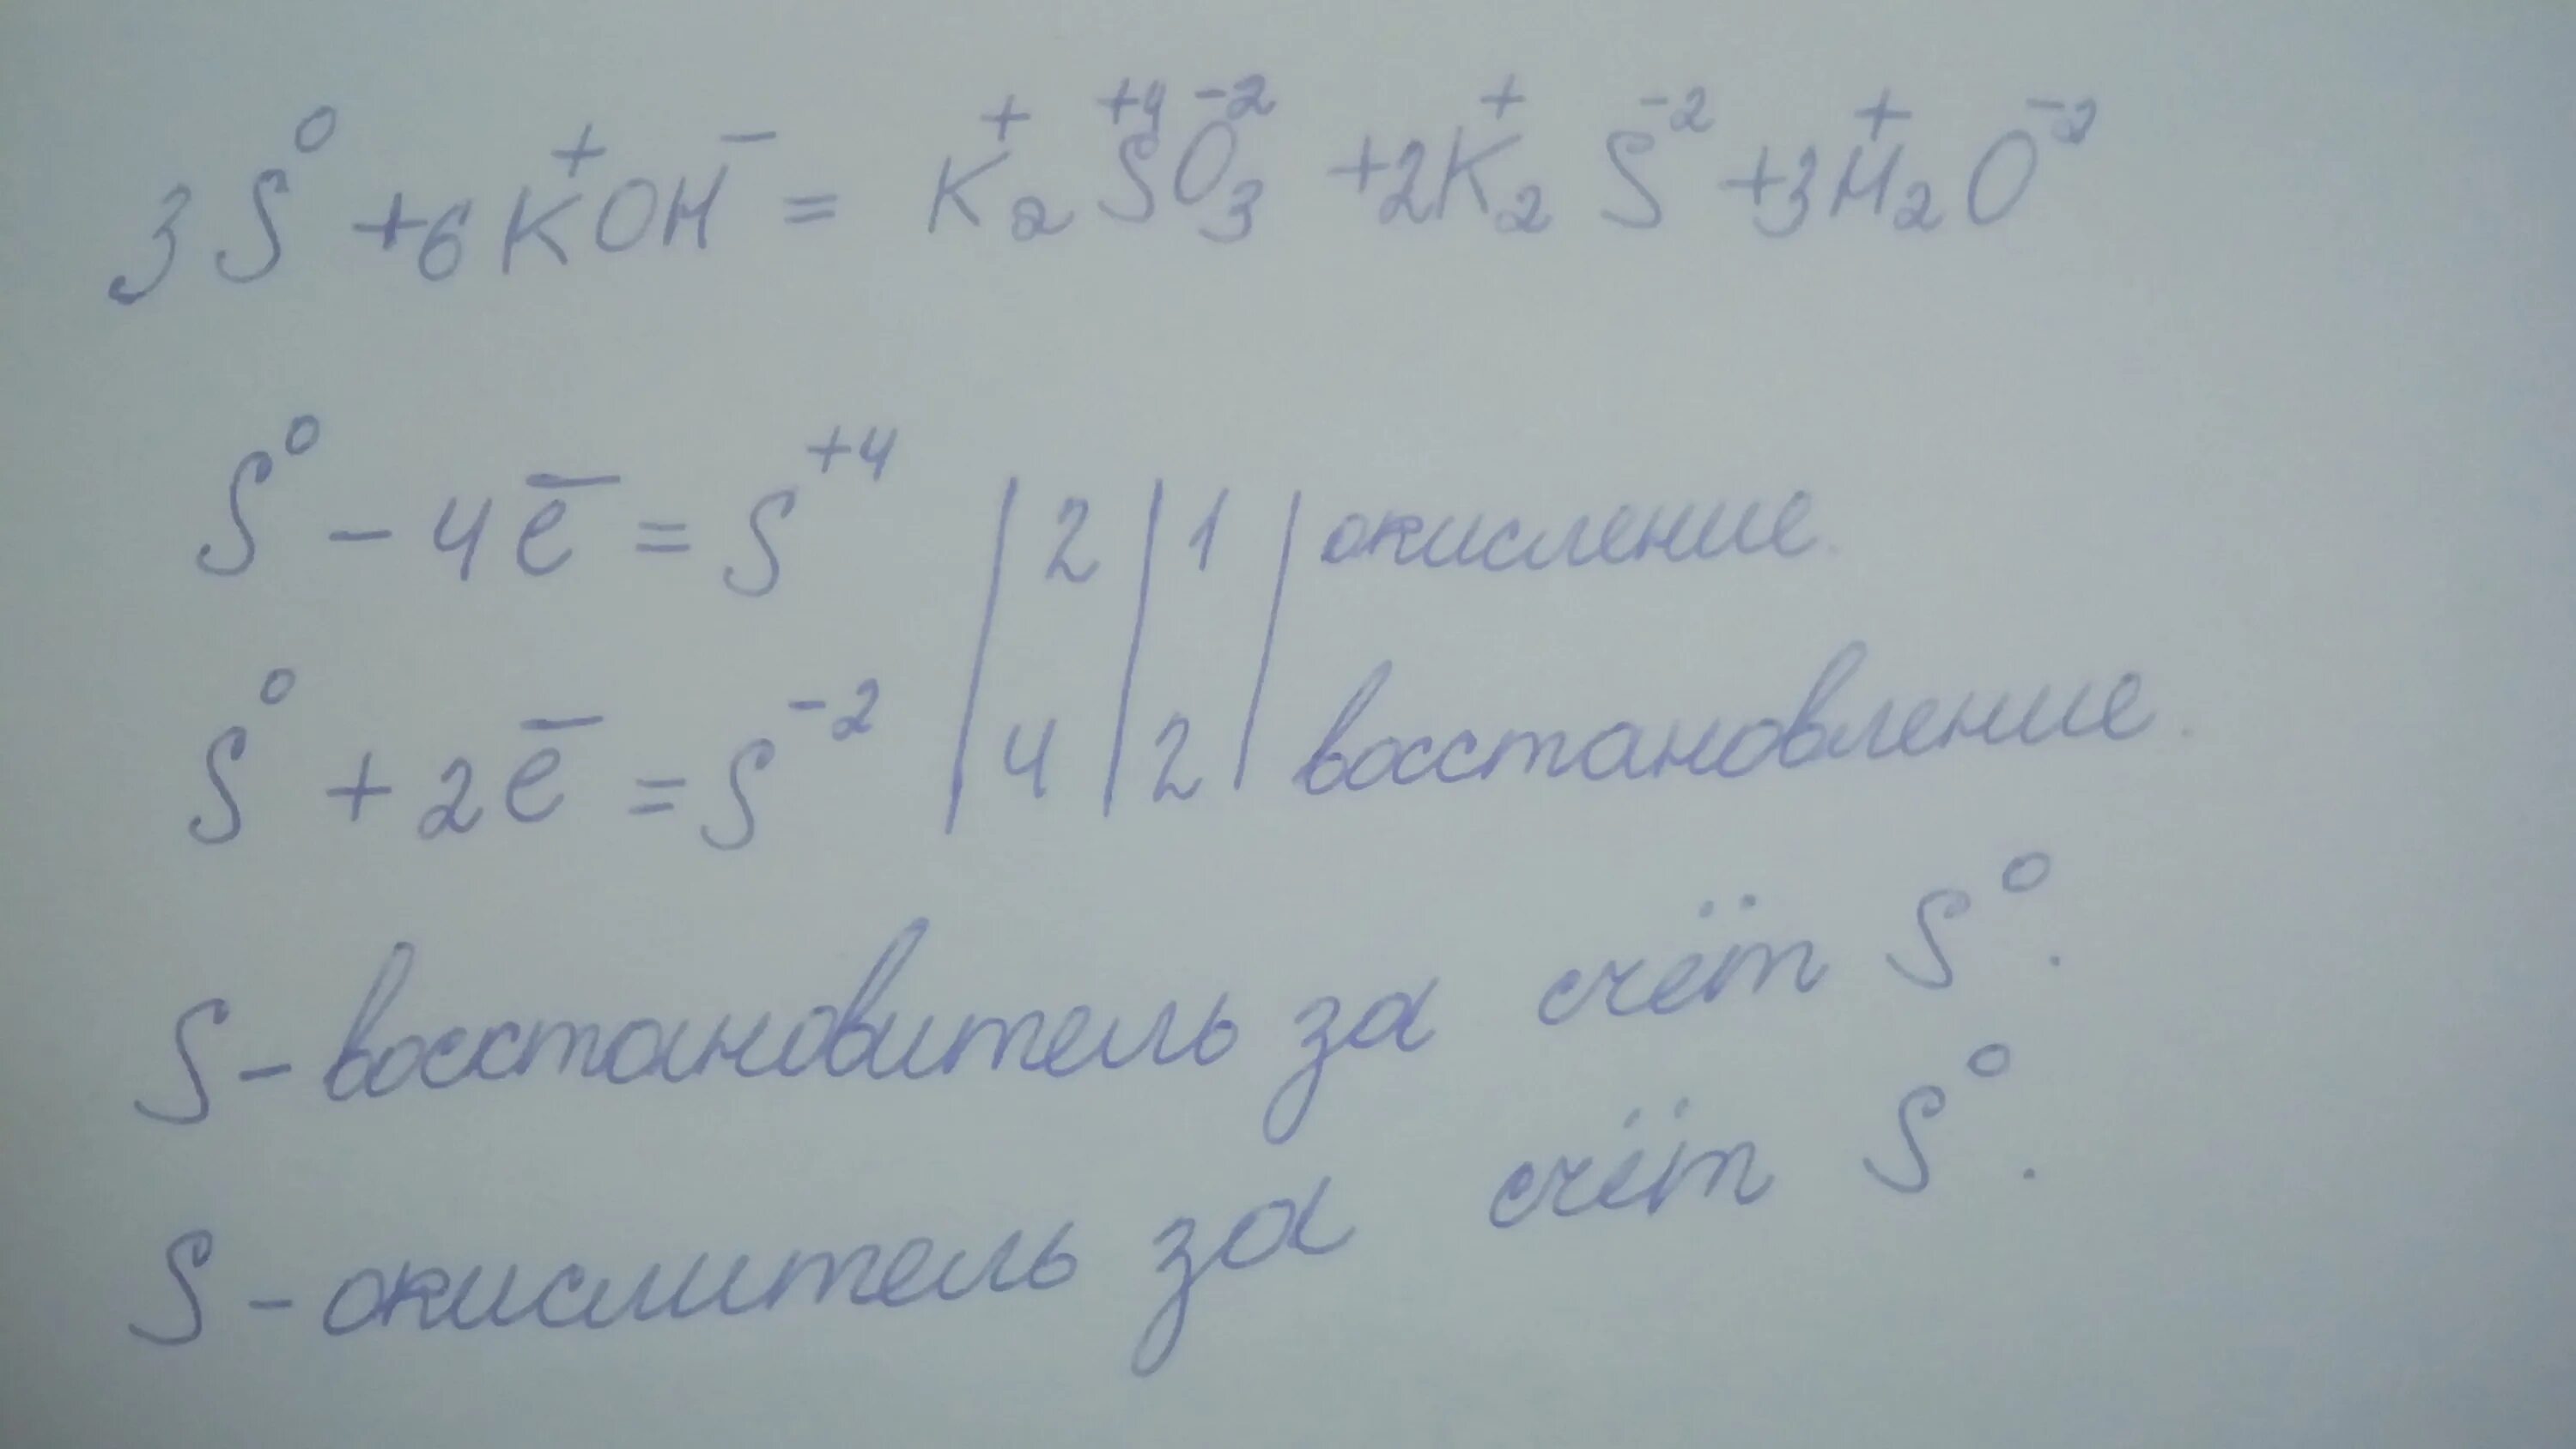 3S⁰ + 6K⁺OH⁻ = K⁺₂S⁺⁴O⁻²₃ + 2K⁺₂S⁻² + 3H⁺₂O⁻²
S⁰ - 4e̅ = S⁺⁴ | 2 | 1 | окисление.
S⁰ + 2e̅ = S⁻² | 4 | 2 | восстановление.
S - восстановитель за счёт S⁰.
S - окислитель за счёт S⁰.